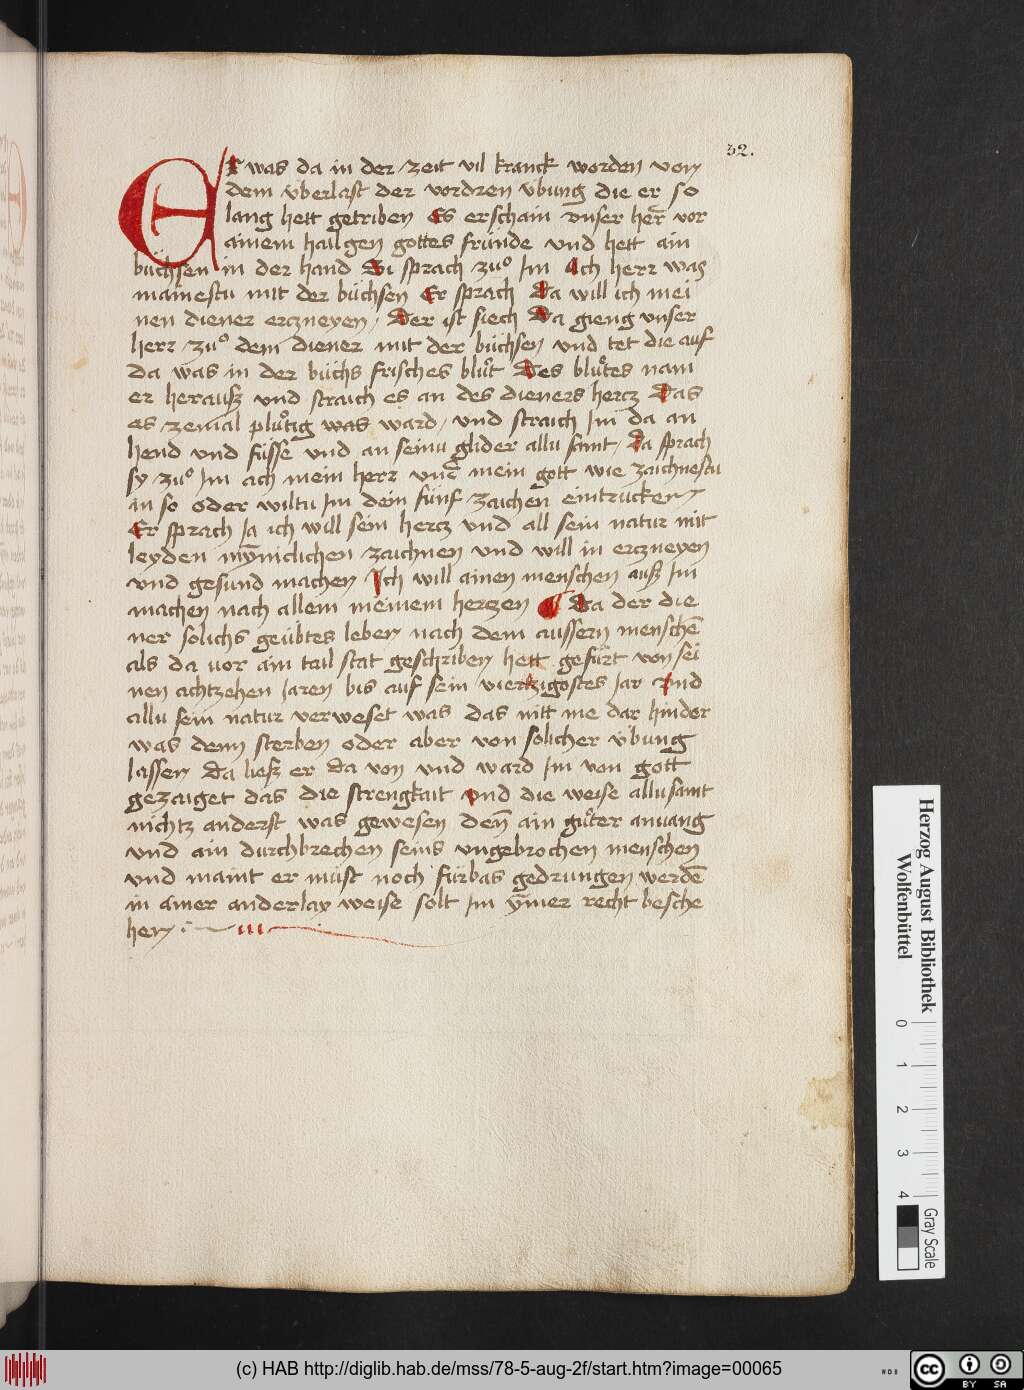 32.
Er was da in der zeit vil kranck worden von
dem v̈berlast der vordren v̈bung die er so
lang hett getriben Es erschain vnser herr vor
ainem hailgen gottes fründe vnd hett ain
büchsen in der hand Si sprach zuͦ Im Ach herr was
mainestu mit der büchsen Er sprach Da will ich mei
nen diener erczneyen / Der ist siech Da gieng vnser
herr zuͦ dem diener mit der büchsen vnd tet die auf
da was in der büchs frisches bluͦt Des bluͦtes nam
er herauſz vnd straich es an des dieners hercz Das
es zemal pluͦtig was ward / vnd straich Im da an
hend vnd füsse vnd an seinu glider allu samt / Da sprach
sy zuͦ Im ach mein herr vnd̄ mein gott wie zaichnestu
in so oder wiltu Im dein fünf zaichen eintrucken
Er sprach Ja ich will sein hercz vnd all sein natur mit
leyden mȳniclichen zaichnen vnd will in erczneyen
vnd gesund machen Ich will ainen menschen auſz Im
machen nach allem meinem herczen ¶ Da der die
ner solichs geübtes leben nach dem aussern menschē
als da vor ain tail stat geschriben hett gefürt von sei
nen achtzehen Jaren bis auf sein vierczigostes Jar Vnd
allu sein natur verweset was das nitt me dar hinder
was denn sterben oder aber von solicher v̈bung
lassen Da lieſz er da von vnd ward Im von gott
gezaiget das die strengkait vnd die weise allusamt
nichtz anderst was gewesen deñ ain guͦter anuang
vnd ain durchbrechen seins vngebrochen menschen
vnd maint er müst noch fürbas gedrungen werdē
in ainer anderlay weise solt Im ȳmer recht besche
hen
Herzog August Bibliothek
Wolfenbüttel
0 1 2 3 4
Gray Scale
(c) HAB http://diglib.hab.de/mss/78-5-aug-2f/start.htm?image=00065
cc BY SA